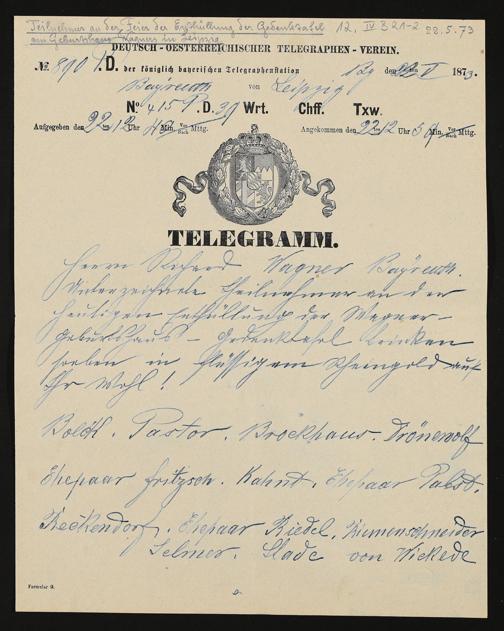 Teilnehmer an der Feier der Enthüllung der Gedenktafel 12. IV B 21-2 22.5.73
am Geburtshaus Wagners in Leipzig.
DEUTSCH-OESTERREICHISCHER TELEGRAPHEN-VEREIN.
№ 890 /D. der königlich bayerischen Telegraphenstation Bg den V 1873.
Bayreuth von Leipzig
No. 415 D. 39 Wrt. Chff. Txw.
Aufgegeben den 22 12 Uhr Min. Vor Nach Mttg. Angekommen den 22 12 Uhr Min. Vor Nach Mttg.
TELEGRAMM.
Herrn Richard Wagner Bayreuth.
Unterzeichnete Theilnehmer an der
heutigen Enthüllung der Wagner-
Geburtshaus – Gedenktafel trinken
soeben in flüssigem Rheingold auf
Ihr Wohl!
Bolck. Pastor. Brockhaus. Drönewolf
Ehepaar Fritzsch. Kahnt. Ehepaar Pabst.
Reckendorf. Ehepaar Riedel. Riemenschneider
Selmer. Slade von Wickede
Formular 9.